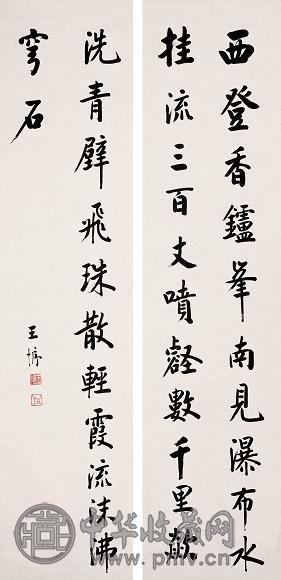 西登香鑪峯南見瀑布水
挂流三百丈噴壑數千里歘
洗青壁飛珠散輕霞流沫沸
穹石
王
中华收藏网